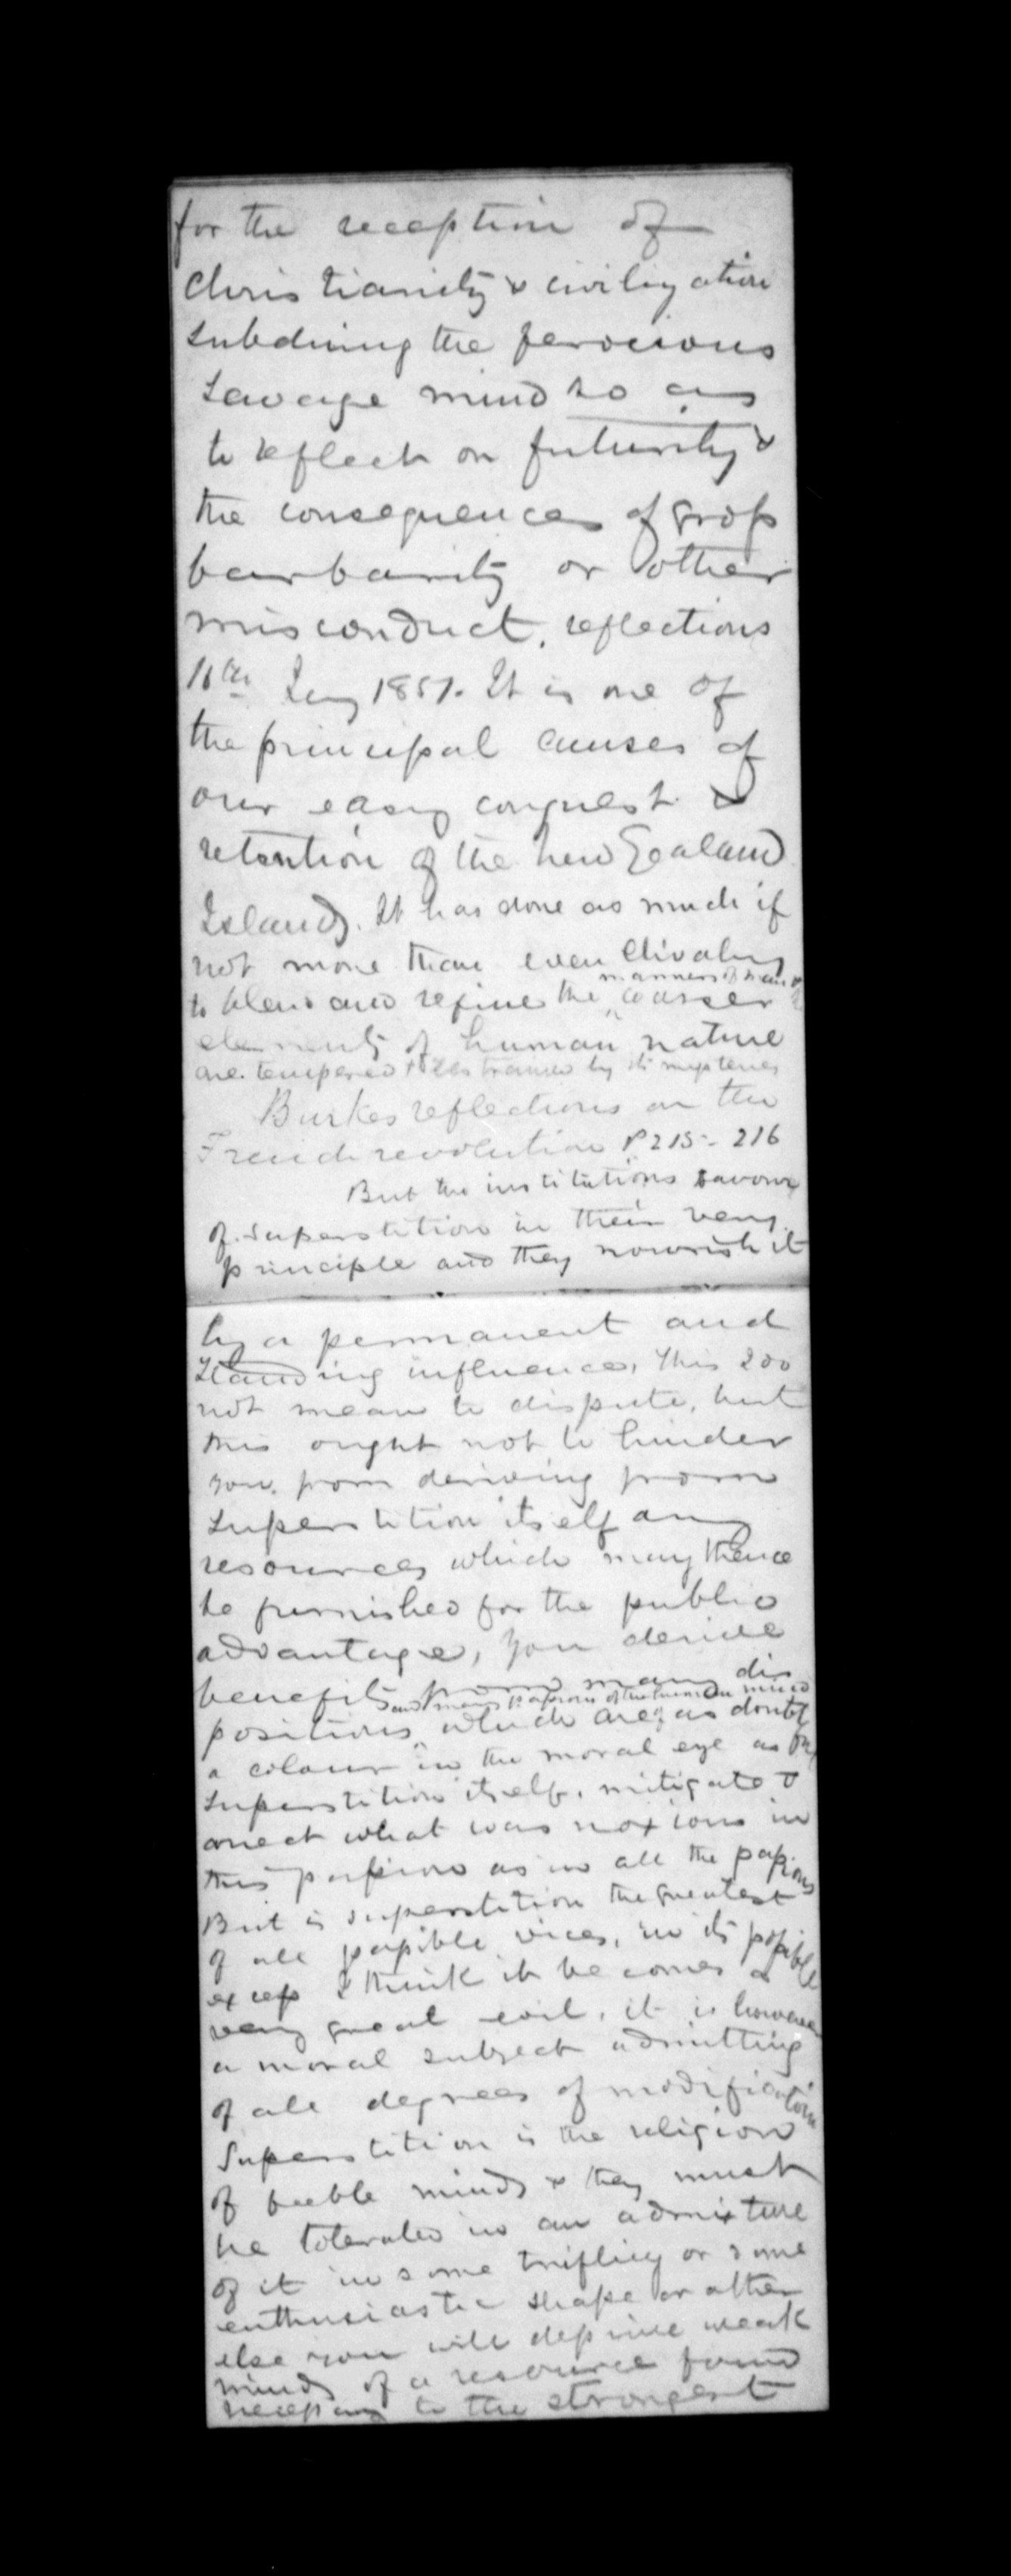 for the reception of
Christianity & civilization
subduing the ferocious
savage mind so as
to reflect on futurity &
the consequences of gross
barbarity or other
misconduct, reflections
16th Jany 1851. It is one of
the principal causes of
our easy conquest &
retention of the New Zealand
Islands. It has done as much if
not more than even Chivalry
manners of man &
to blend and refine the coarser
elements of human nature
are tempered & restrained by its mysteries
Burkes reflections on the
French revolution P 215 - 216
But the institutions savour
of superstition in their very
principle and they nourish it
by a permanent and
standing influence, This I do
not mean to dispute, but
this ought not to hinder
you from deriving from
superstition itself any
resources which may thence
be furnished for the public
advantage, You derive
benefits from many dis
and many passions of the human mind
positions which are of as doubtful
a colour in the moral eye as
superstition itself. mitigate &
correct what was noxious in
this passion as in all the passions
But is superstition the greatest
of all possible vices, in its possible
excess I think it becomes a
very great evil, it is however
a moral subject admitting
of all degrees of modification
Superstition is the religion
of feeble minds & they must
be tolerated in an admixture
of it in some trifling or some
enthusiastic shape or other
else you will deprive weak
minds of a resource found
necessary to the strongest